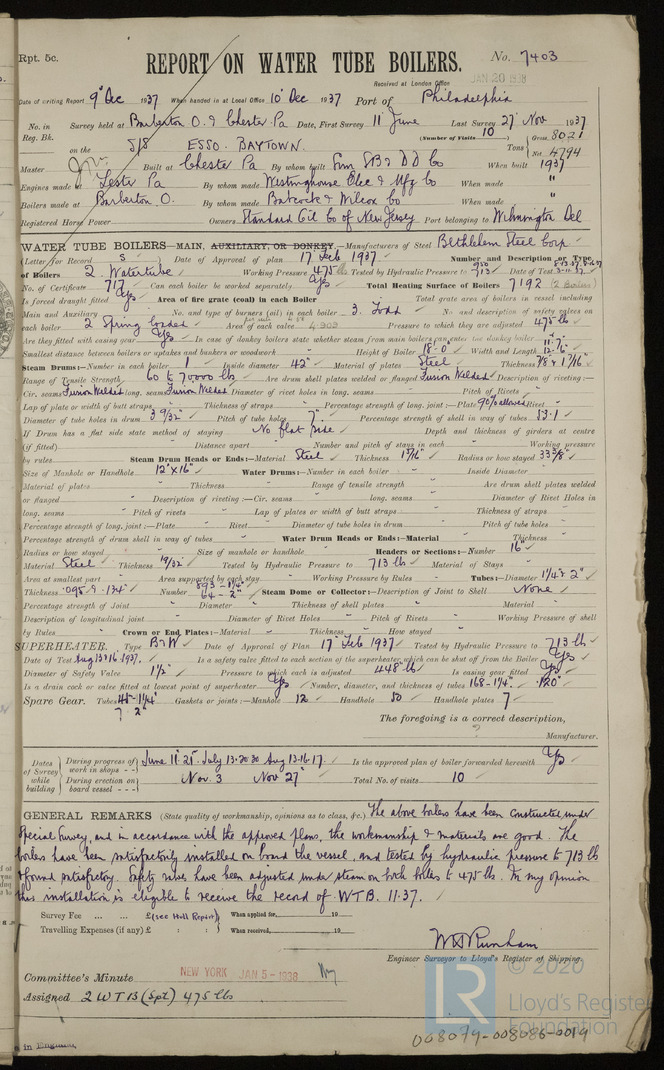 Rpt. 5c.
REPORT ON WATER TUBE BOILERS.
No. 7403
Received at London Office JAN 20 1938
Date of writing Report 9 Dec 1937 When handed in at Local Office 10 Dec 1937 Port of Philadelphia
No. in Reg. Bk. Survey held at Barberton O. & Chester Pa Date, First Survey 11 June Last Survey 27 Nov 1937
(Number of Visits 10
on the S/S ESSO BAYTOWN. Tons Gross 8021 Net 4794
Master Built at Chester Pa By whom built Sun SB & DD Co When built 1937
Engines made at Lester Pa By whom made Westinghouse Elec & Mfg Co When made "
Boilers made at Barberton O. By whom made Babcock & Wilcox Co When made "
Registered Horse Power Owners Standard Oil Co of New Jersey Port belonging to Wilmington Del
WATER TUBE BOILERS—MAIN, AUXILIARY, OR DONKEY.—Manufacturers of Steel Bethlehem Steel Corp
(Letter for Record S) Date of Approval of plan 17 Feb 1937 Number and Description or Type
of Boilers 2 Watertube Working Pressure 475 lb Tested by Hydraulic Pressure to 713 Date of Test
No. of Certificate 717 Can each boiler be worked separately Yes Total Heating Surface of Boilers 7192 (2 Boilers)
Is forced draught fitted Yes Area of fire grate (coal) in each Boiler Total grate area of boilers in vessel including
Main and Auxiliary No. and type of burners (oil) in each boiler 3. Todd No. and description of safety valves on
each boiler 2 Spring loaded Area of each valve 4.302 Pressure to which they are adjusted 475 lb
Are they fitted with easing gear Yes In case of donkey boilers state whether steam from main boilers can enter the donkey boiler
Smallest distance between boilers or uptakes and bunkers or woodwork Height of Boiler 18'-0" Width and Length 11'-7" 12'-16"
Steam Drums:—Number in each boiler 1 Inside diameter 42" Material of plates Steel Thickness 7/8 & 1 7/16"
Range of Tensile Strength 60 to 70000 lbs Are drum shell plates welded or flanged Fusion Welded Description of riveting:—
Cir. seams Fusion Welded long. seams Fusion Welded Diameter of rivet holes in long. seams Pitch of Rivets
Lap of plate or width of butt straps Thickness of straps Percentage strength of long. joint:—Plate 90% allowed Rivet
Diameter of tube holes in drum 3 9/32" Pitch of tube holes 7" Percentage strength of shell in way of tubes 53.1
If Drum has a flat side state method of staying No flat side Depth and thickness of girders at centre
(if fitted) Distance apart Number and pitch of stays in each Working pressure
by rules Steam Drum Heads or Ends:—Material Steel Thickness 15/16" Radius or how stayed 33 5/8"
Size of Manhole or Handhole 12"x16" Water Drums:—Number in each boiler Inside Diameter
Material of plates Thickness Range of tensile strength Are drum shell plates welded
or flanged Description of riveting:—Cir. seams long. seams Diameter of Rivet Holes in
long. seams Pitch of rivets Lap of plates or width of butt straps Thickness of straps
Percentage strength of long. joint:—Plate Rivet Diameter of tube holes in drum Pitch of tube holes
Percentage strength of drum shell in way of tubes Water Drum Heads or Ends:—Material Thickness
Radius or how stayed Size of manhole or handhole Headers or Sections:—Number 16
Material Steel Thickness 19/32" Tested by Hydraulic Pressure to 713 lb Material of Stays
Area at smallest part Area supported by each stay Working Pressure by Rules Tubes:—Diameter 1 1/4 & 2"
Thickness .095 & .134" Number 893 - 1 1/4" 64 - 2" Steam Dome or Collector:—Description of Joint to Shell None
Percentage strength of Joint Diameter Thickness of shell plates Material
Description of longitudinal joint Diameter of Rivet Holes Pitch of Rivets Working Pressure of shell
by Rules Crown or End Plates:—Material Thickness How stayed
SUPERHEATER. Type B & W Date of Approval of Plan 17 Feb 1937 Tested by Hydraulic Pressure to 713 lb
Date of Test Aug 13 & 16 1937. Is a safety valve fitted to each section of the superheater which can be shut off from the Boiler Yes
Diameter of Safety Valve 1 1/2" Pressure to which each is adjusted 448 lb Is easing gear fitted Yes
Is a drain cock or valve fitted at lowest point of superheater Yes Number, diameter, and thickness of tubes 168-1 1/4" .120"
Spare Gear. Tubes 45-1 1/4" 7 2" Gaskets or joints:—Manhole 12 Handhole 50 Handhole plates 7
The foregoing is a correct description,
Manufacturer.
Dates of Survey while building
During progress of work in shops - - June 11. 25. July 13. 20. 30. Aug 13. 16. 17. Is the approved plan of boiler forwarded herewith Yes
During erection on board vessel - - - Nov. 3 Nov 27 Total No. of visits 10
GENERAL REMARKS (State quality of workmanship, opinions as to class, &c.) The above boilers have been constructed under
Special Survey, and in accordance with the approved plans, the workmanship & materials are good. The
boilers have been satisfactorily installed on board the vessel, and tested by hydraulic pressure to 713 lb
& found satisfactory. Safety valves have been adjusted under steam on both boilers to 475 lb. In my opinion
this installation is eligible to receive the record of WTB. 11.37.
Survey Fee ... ... £ (see Hull Report) When applied for, 19
Travelling Expenses (if any) £ : : When received, 19
Engineer Surveyor to Lloyd's Register of Shipping.
Committee's Minute NEW YORK JAN 5 - 1938
Assigned 2 WTB (Spt) 475 lbs
© 2020
LR
Lloyd's Register
Foundation
008079-008086-0019